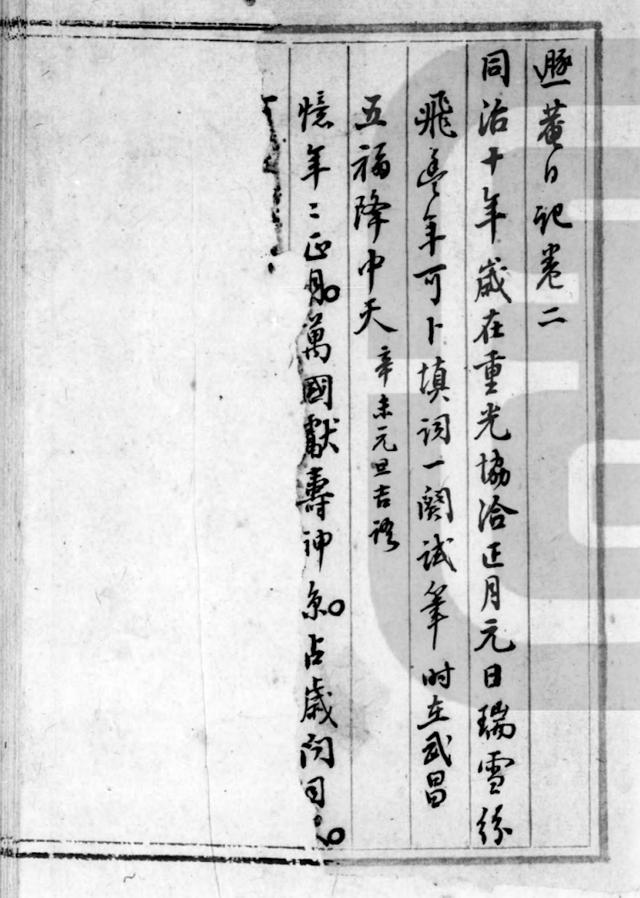 遯菴日記卷二
同治十年歲在重光協洽正月元日瑞雪紛
飛豐年可卜填詞一闋試筆時在武昌
五福降中天 辛未元旦吉語
憶年〻正月萬國獻壽神京占歲問同